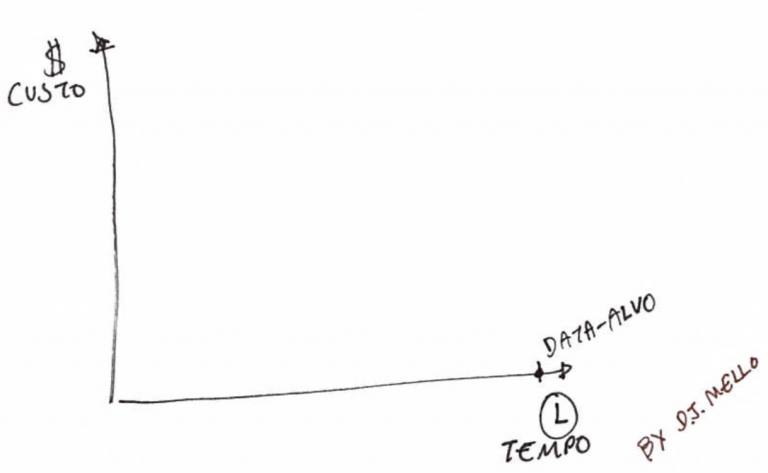 $
CUSTO
DATA-ALVO
L
TEMPO
BY D.J. MELLO